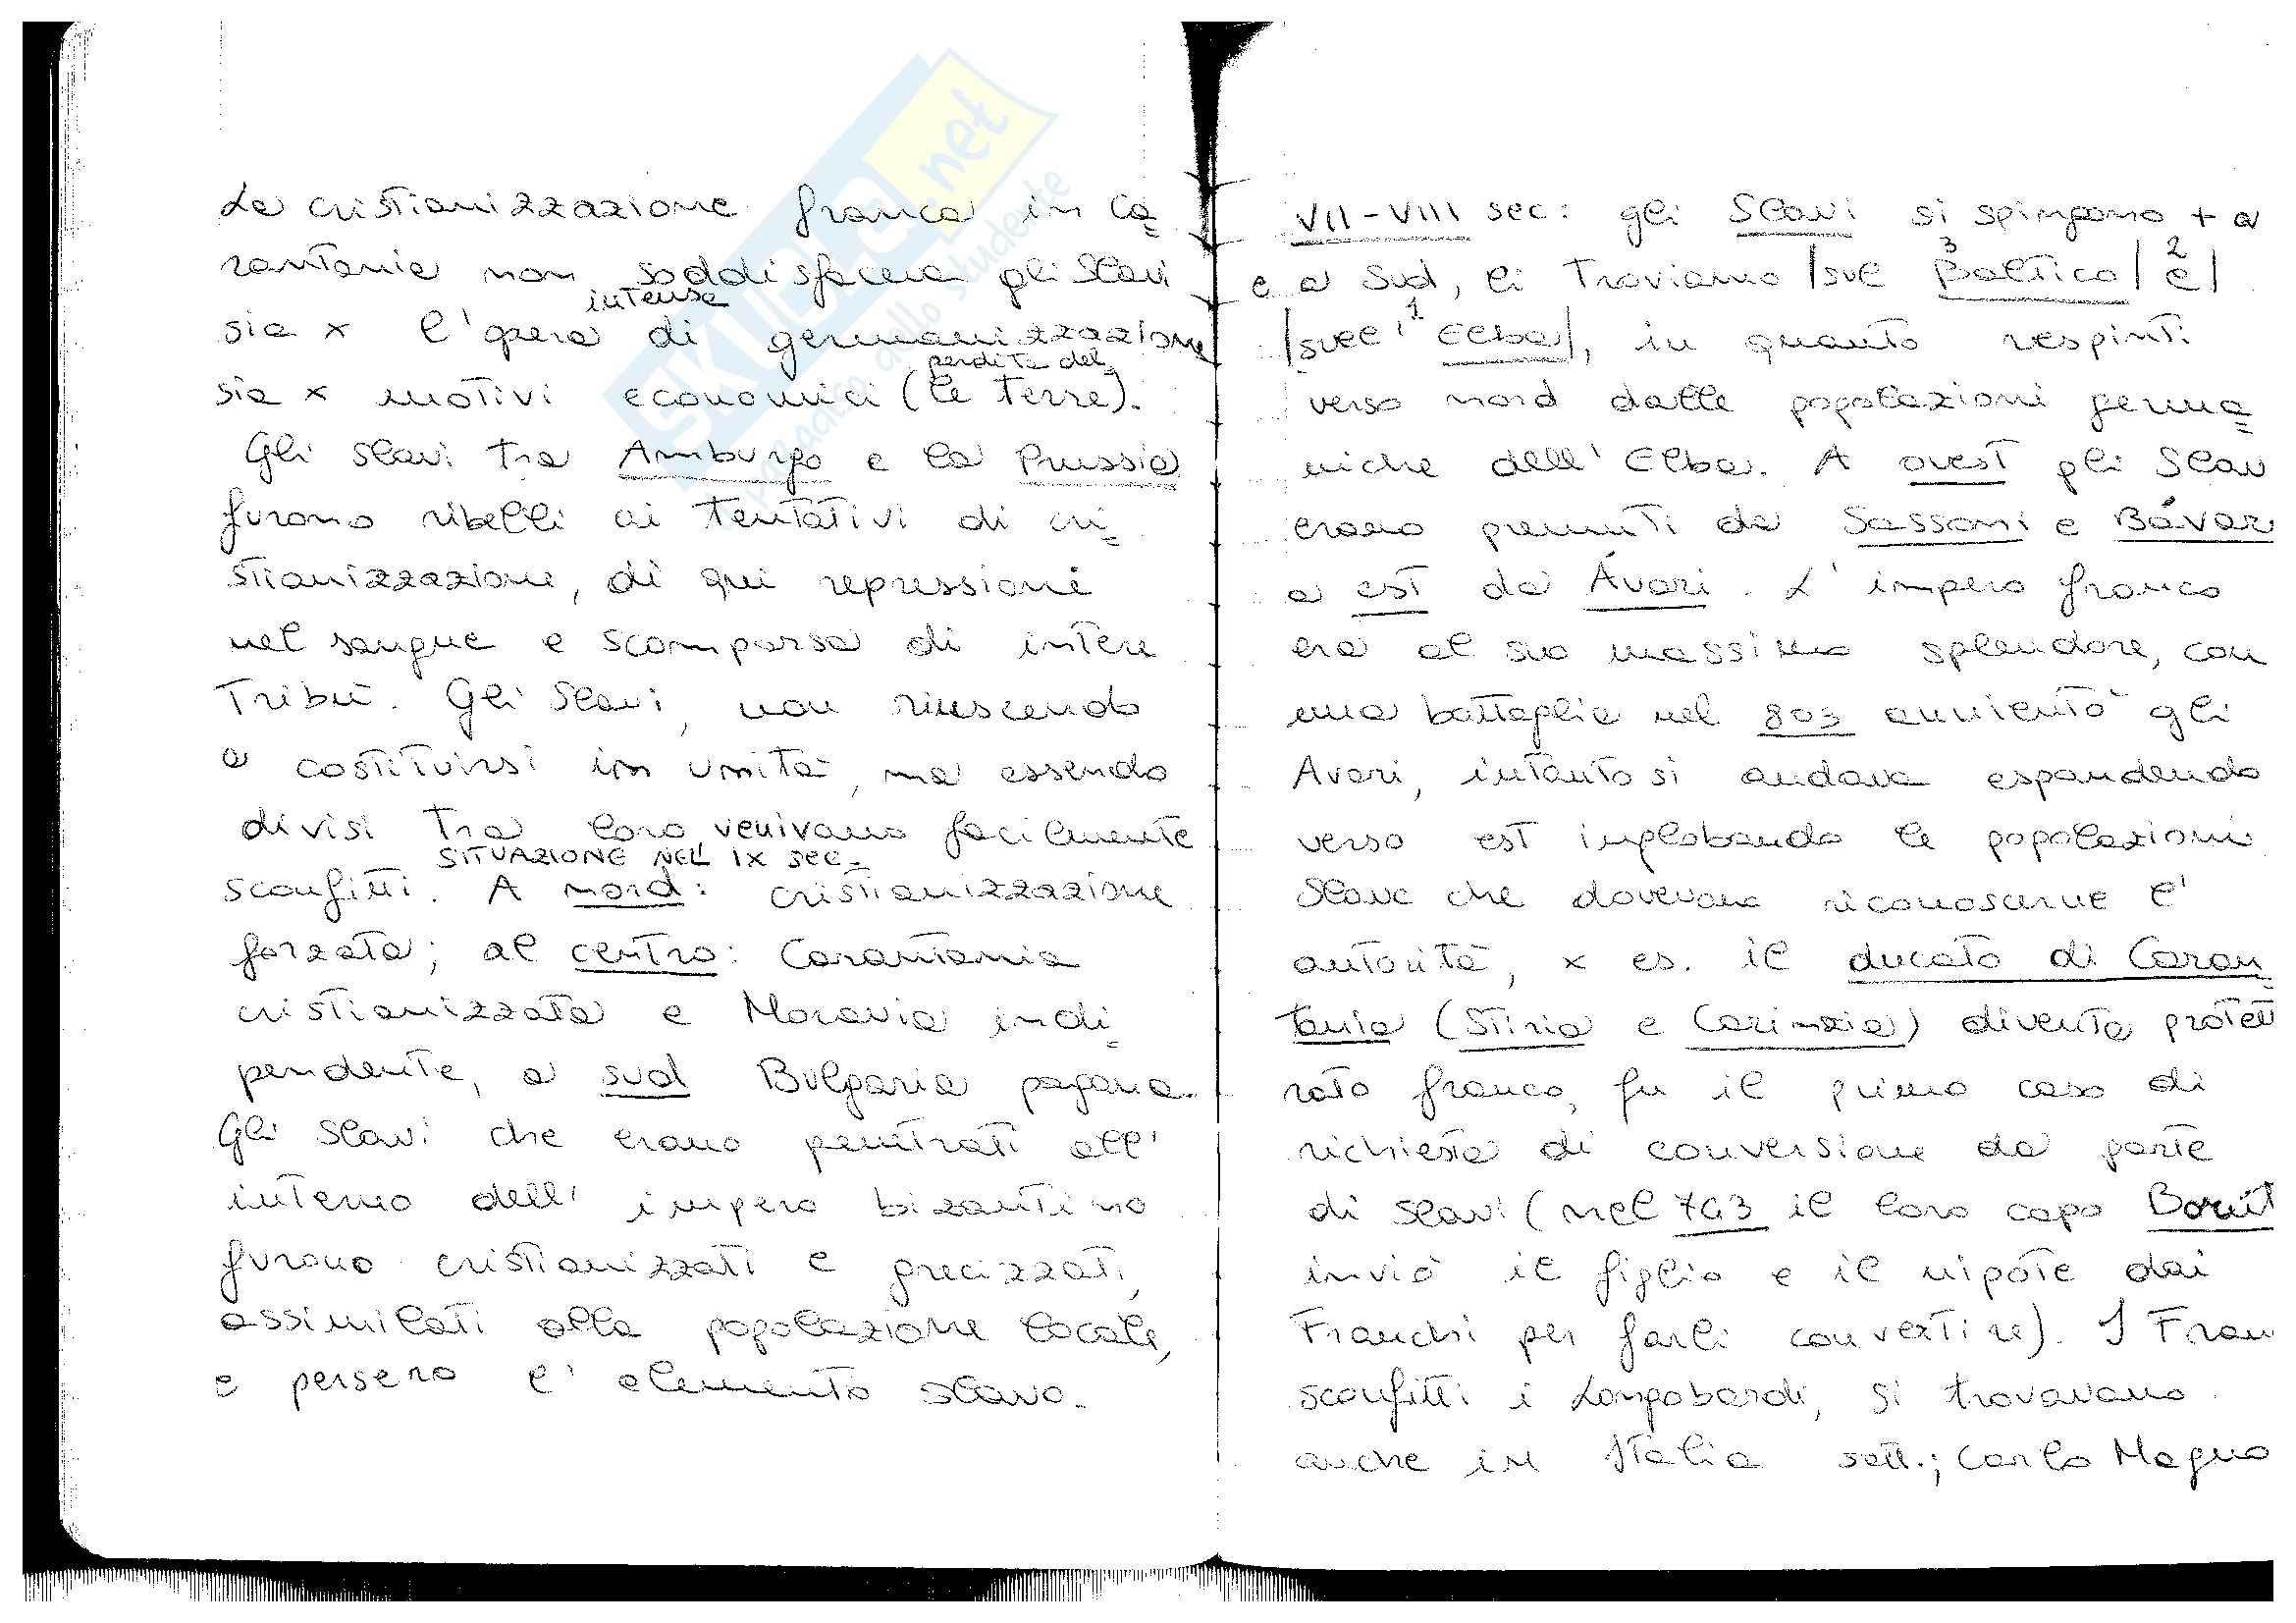 La cristianizzazione franca in Ca=
rantania non soddisfaceva gli Slavi
sia x l'opera intensa di germanizzazione
sia x motivi economici (perdita del le terre).
Gli slavi tra Amburgo e la Prussia
furono ribelli ai tentativi di cri=
stianizzazione, di qui repressioni
nel sangue e scomparsa di intere
Tribù. Gli Slavi, non riuscendo
a costituirsi in unità, ma essendo
divisi tra loro venivano facilmente
SITUAZIONE NEL IX SEC.
sconfitti. A nord: cristianizzazione
forzata; al centro: Carantania
cristianizzata e Moravia indi=
pendente, a sud Bulgaria pagana.
Gli slavi che erano penetrati all'
interno dell'impero bizantino
furono cristianizzati e grecizzati,
assimilati alla popolazione locale,
e persero l'elemento slavo.
VII-VIII sec: gli Slavi si spingono + a
e a Sud, li troviamo |sul 3 Baltico| 2 e|
|sull'1 Elba|, in quanto respinti
verso nord dalle popolazioni germa=
niche dell'Elba. A ovest gli Slav
erano premuti da Sassoni e Bávar
a est da Ávari. L'impero franco
era al suo massimo splendore, con
una battaglia nel 803 annientò gli
Avari, intanto si andava espandendo
verso est inglobando le popolazioni
slave che dovevano riconoscerne l'
autorità, x es. il ducato di Caran=
tania (Stiria e Carinzia) diventa protet
rato franco, fu il primo caso di
richiesta di conversione da parte
di slavi (nel 743 il loro capo Borút
inviò il figlio e il nipote dai
Franchi per farli convertire). I Fran
sconfitti i Longobardi, si trovavano
anche in Italia sett.; Carlo Magno
SKUOLA.net
paradiso dello studente